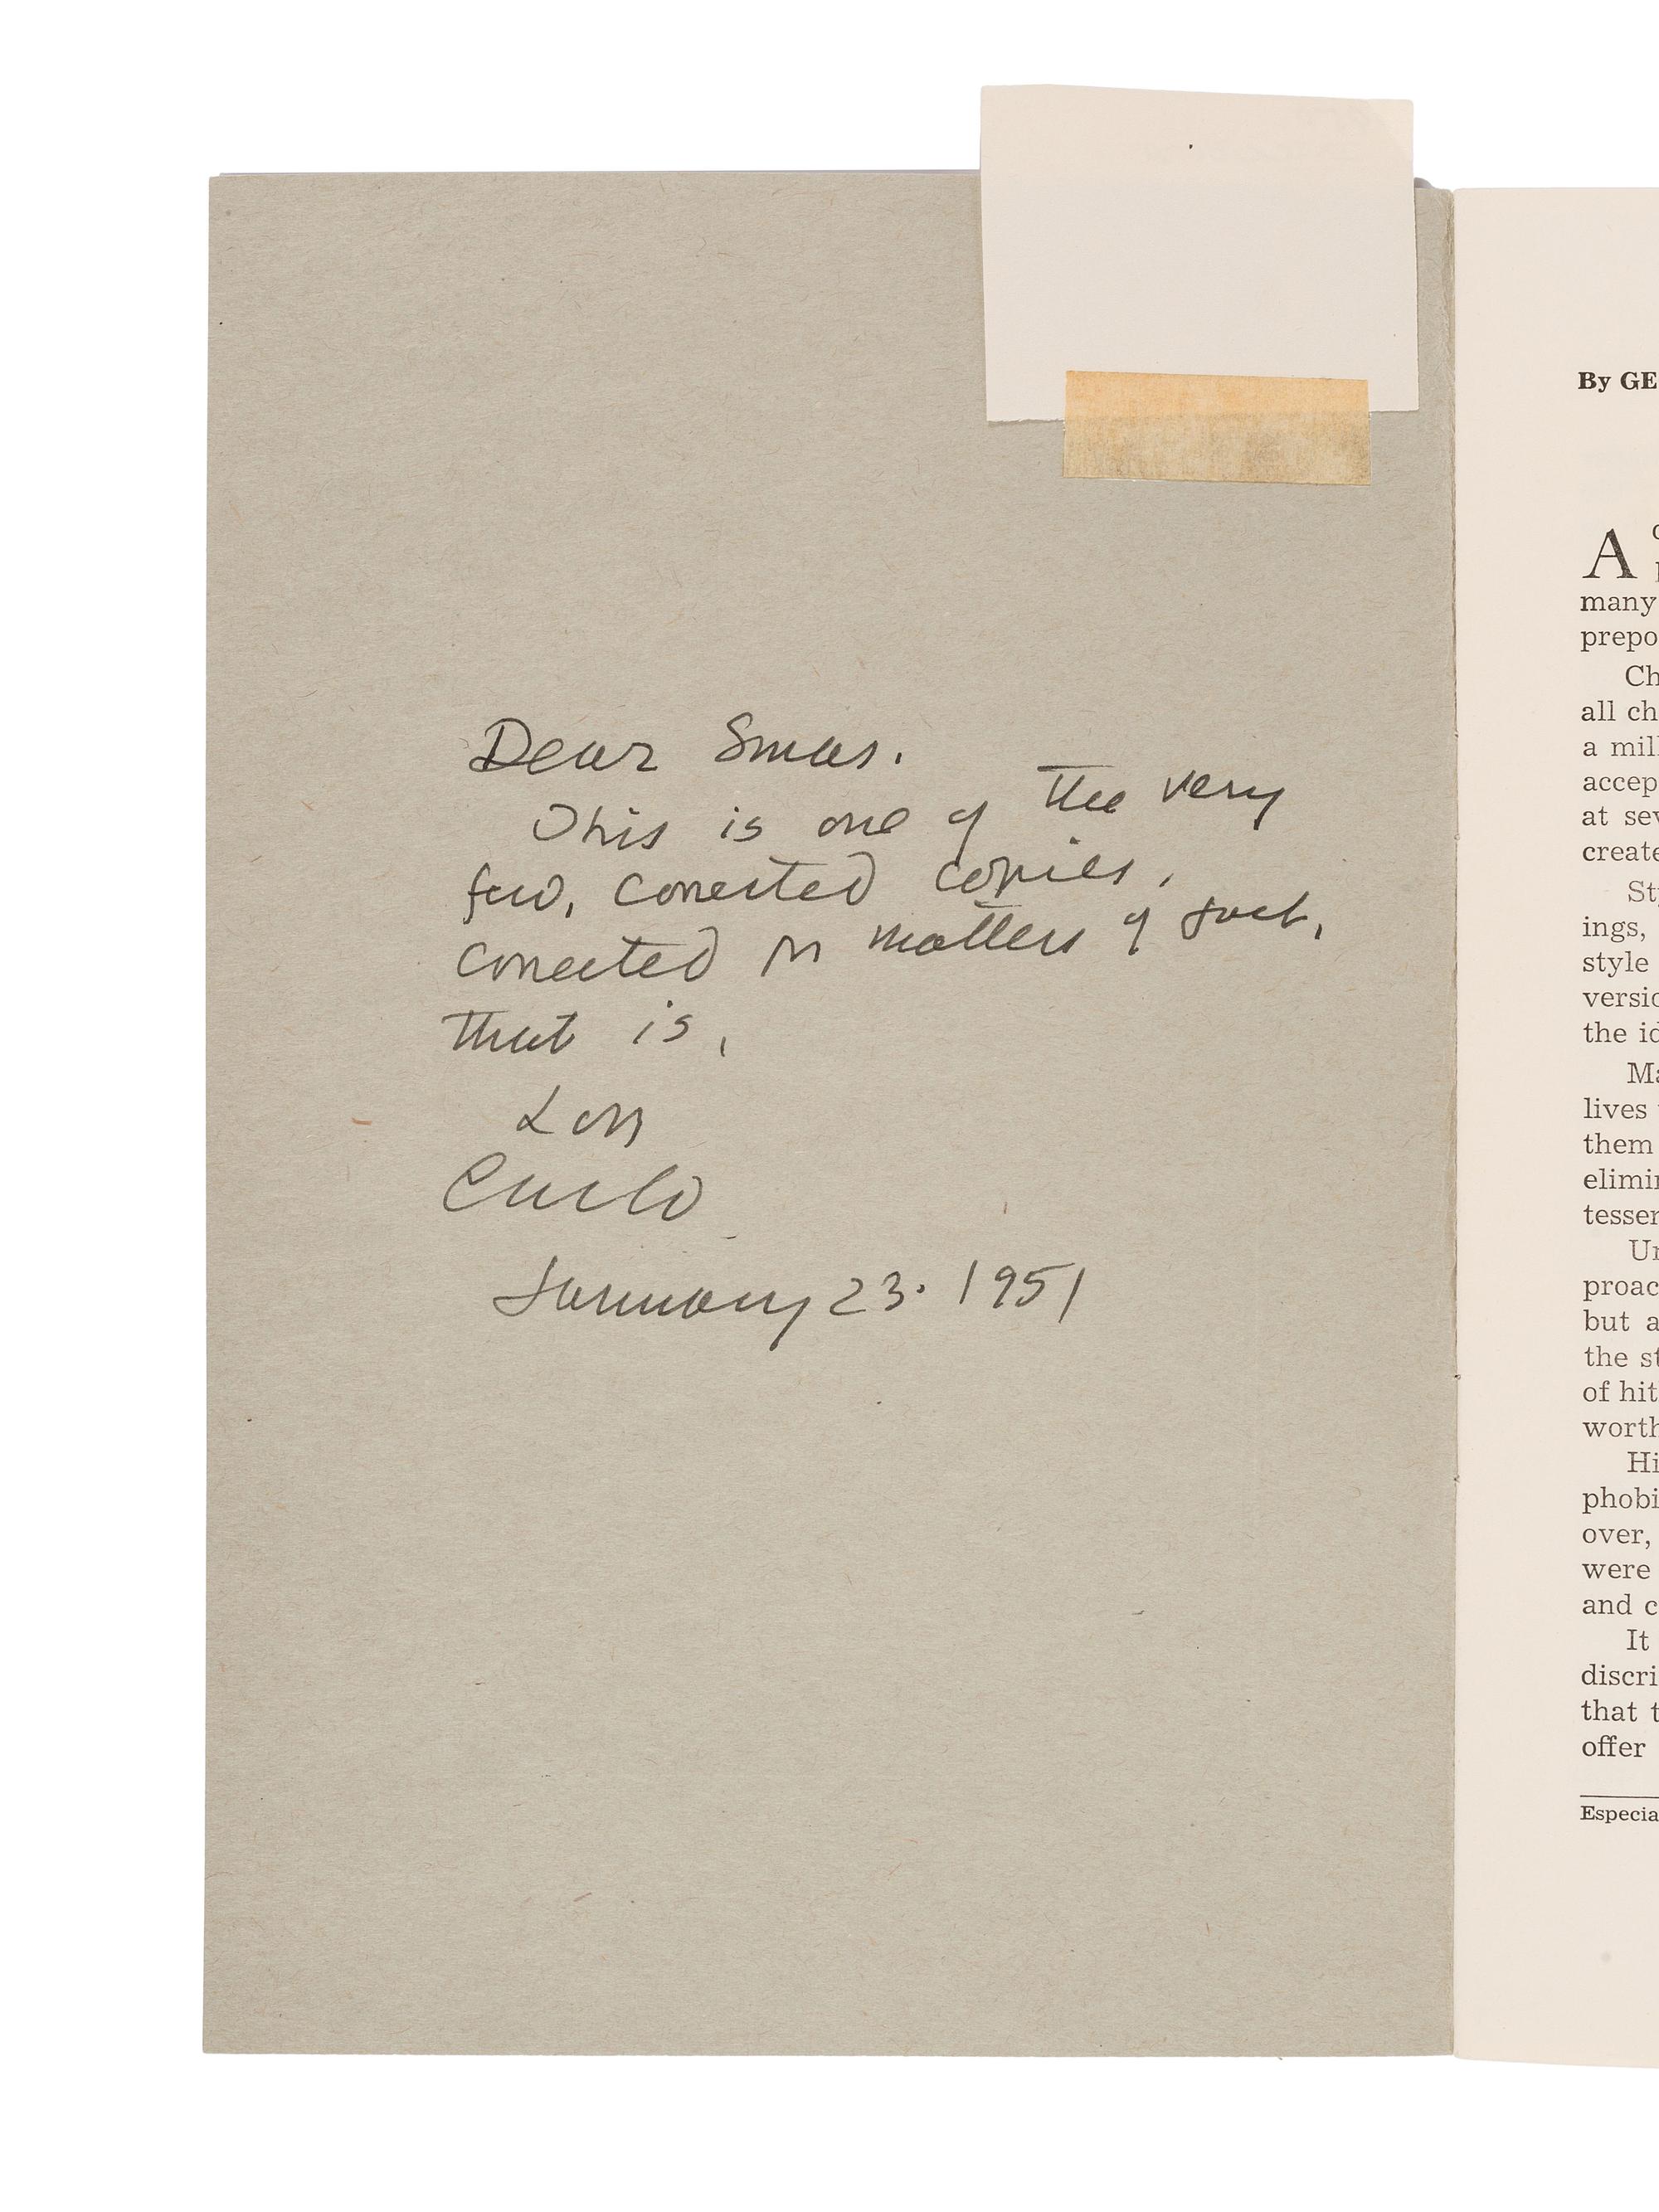 Dear
This is one of the very
few, corrected copies,
corrected in matters of fact,
that is,
January 23. 1951
By GE
A
many
prepo
Ch
all ch
a mil
accep
at sev
create
St
ings,
style
versio
the id
Ma
lives
them
elimin
tesser
Un
proac
but a
the st
of hit
worth
Hi
phobi
over,
were
and c
It
discri
that t
offer
Especia